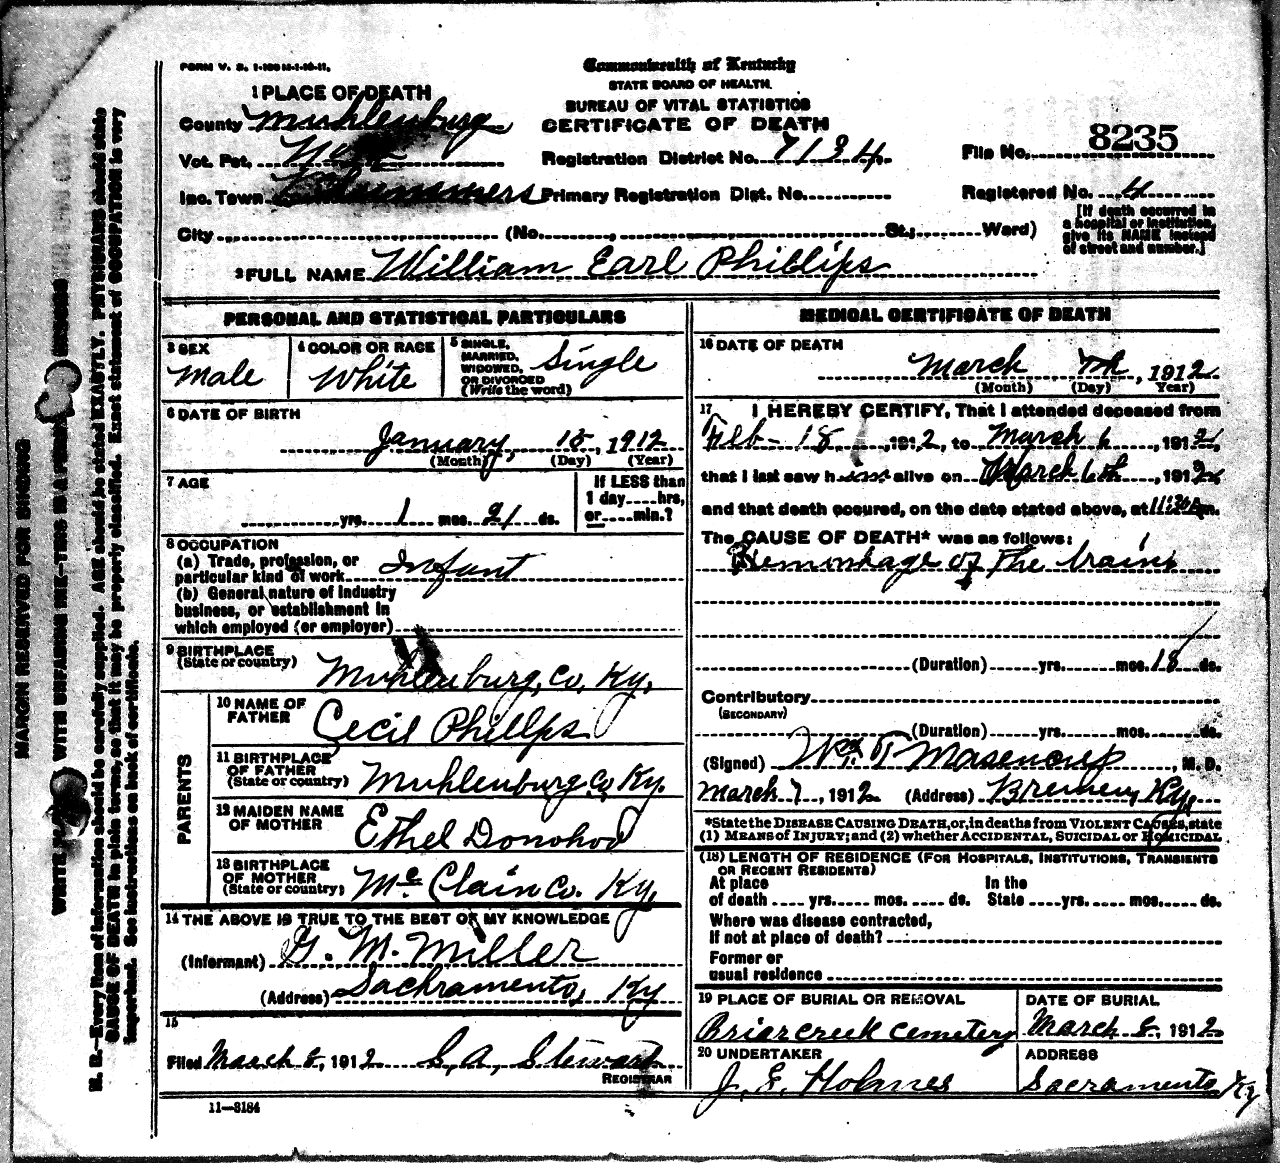 FORM V. S. 1-
Commonwealth of Kentucky
STATE BOARD OF HEALTH.
BUREAU OF VITAL STATISTICS
CERTIFICATE OF DEATH
1 PLACE OF DEATH
County Muhlenburg
Vot. Pct.
Registration District No. 7134
File No. 8235
Inc. Town
Primary Registration Dist. No.
Registered No. 4
City (No. , St.; Ward)
[If death occurred in
a hospital or institution,
give its NAME instead
of street and number.]
2 FULL NAME William Earl Phillips
PERSONAL AND STATISTICAL PARTICULARS
3 SEX
Male
4 COLOR OR RACE
White
5 SINGLE,
MARRIED,
WIDOWED,
OR DIVORCED
(Write the word)
Single
6 DATE OF BIRTH
January, 15, 1912
(Month) (Day) (Year)
7 AGE
yrs. 1 mos. 21 ds.
If LESS than
1 day....hrs,
or....min.?
8 OCCUPATION
(a) Trade, profession, or
particular kind of work Infant
(b) General nature of industry
business, or establishment in
which employed (or employer)
9 BIRTHPLACE
(State or country)
Muhlenburg, Co, Ky.
PARENTS
10 NAME OF
FATHER
Cecil Phillips
11 BIRTHPLACE
OF FATHER
(State or country)
Muhlenburg Co, Ky.
12 MAIDEN NAME
OF MOTHER
Ethel Donohoo
13 BIRTHPLACE
OF MOTHER
(State or country)
McClain Co. Ky.
14 THE ABOVE IS TRUE TO THE BEST OF MY KNOWLEDGE
(Informant) G. M. Miller
(Address) Sacramento, Ky
15
Filed March 8, 1912 S. A. Steward
REGISTRAR
11—3184
MEDICAL CERTIFICATE OF DEATH
16 DATE OF DEATH
March 7th, 1912
(Month) (Day) Year)
17 I HEREBY CERTIFY, That I attended deceased from
Feb- 18, 1912, to March 6, 1912
that I last saw him alive on March 6th, 1912
and that death occured, on the date stated above, at m.
The CAUSE OF DEATH* was as follows:
Hemorrhage of the brain
(Duration) yrs. mos. 18 ds.
Contributory
(SECONDARY)
(Duration) yrs. mos. ds.
(Signed) Wm T Masencup, M. D.
March 7, 1912 (Address) Bremen, Ky,
*State the DISEASE CAUSING DEATH, or, in deaths from VIOLENT CAUSES, state
(1) MEANS OF INJURY; and (2) whether ACCIDENTAL, SUICIDAL or HOMICIDAL.
(18) LENGTH OF RESIDENCE (FOR HOSPITALS, INSTITUTIONS, TRANSIENTS
OR RECENT RESIDENTS)
At place
of death yrs. mos. ds.
In the
State yrs. mos. ds.
Where was disease contracted,
If not at place of death?
Former or
usual residence
19 PLACE OF BURIAL OR REMOVAL
Briarcreek Cemetery
DATE OF BURIAL
March 8, 1912
20 UNDERTAKER
J. E. Holmes
ADDRESS
Sacramento Ky
MARGIN RESERVED FOR BINDING
N. B.—Every item of information should be carefully supplied. AGE should be stated EXACTLY. PHYSICIANS should state
CAUSE OF DEATH in plain terms, so that it may be properly classified. Exact statement of OCCUPATION is very
important. See instructions on back of certificate.